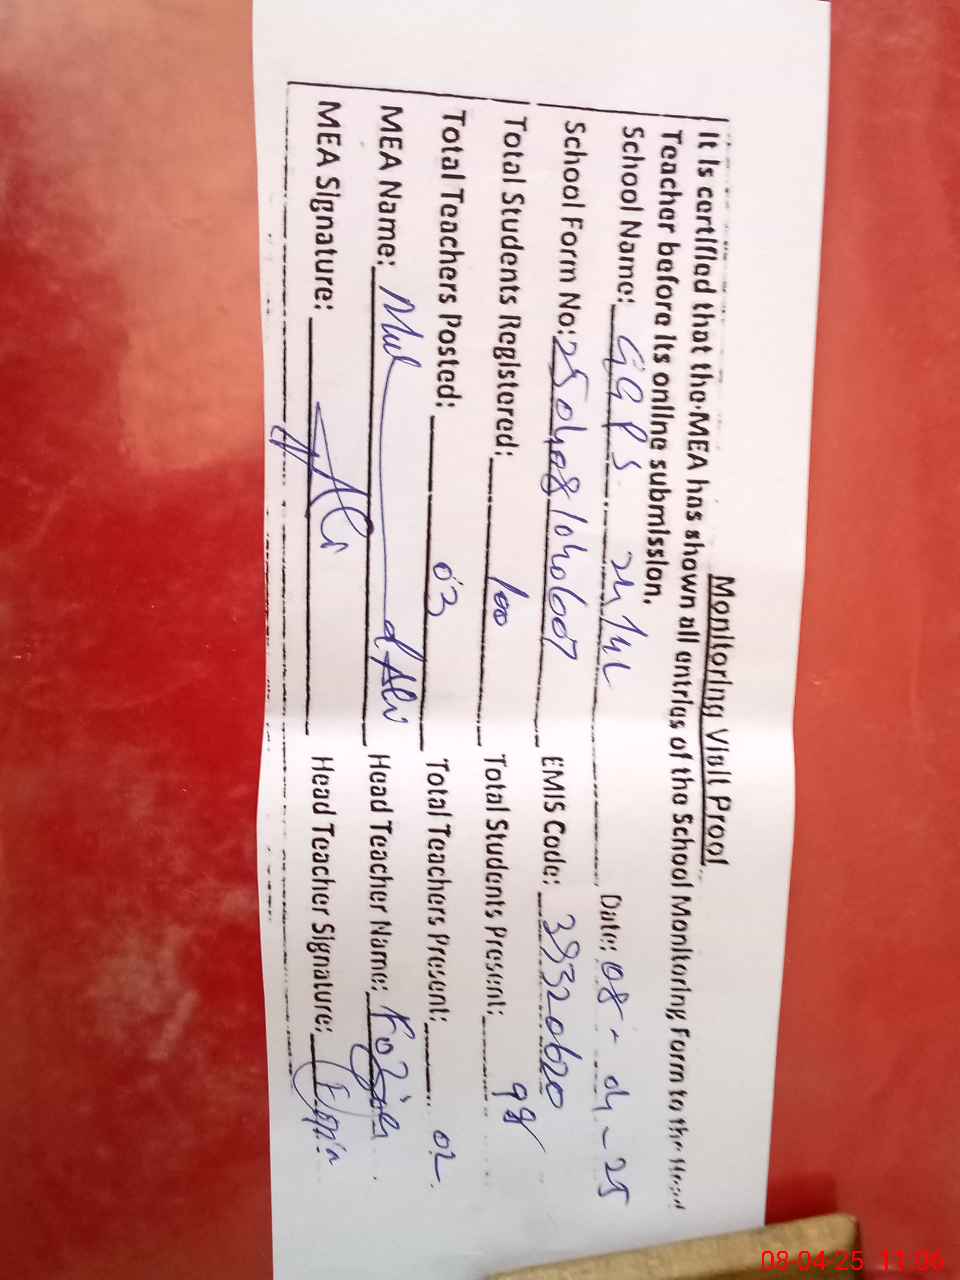 Monitoring Visit Proof
It is certified that the MEA has shown all entries of the School Monitoring Form to the Head
Teacher before its online submission.
School Name: GGPS Date: 08-04-25
School Form No: EMIS Code: 39320620
Total Students Registered: 100 Total Students Present: 98
Total Teachers Posted: 03 Total Teachers Present: 02
MEA Name: Ali Head Teacher Name:
MEA Signature: Ali Head Teacher Signature:
08-04-25 11:06